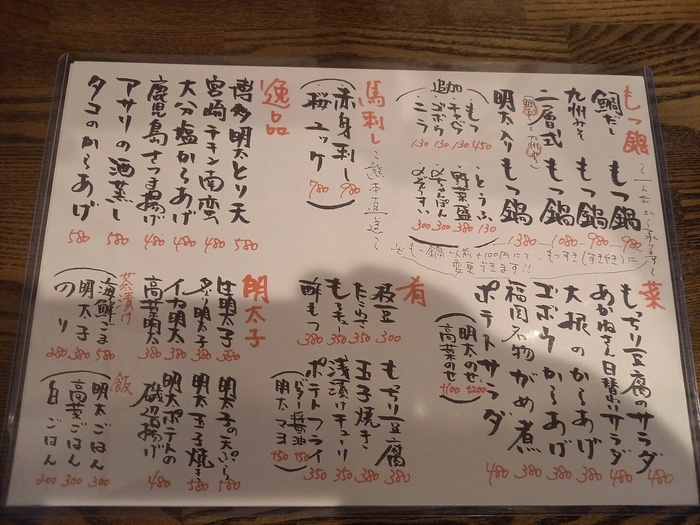 もつ鍋
〜二人前から承ります〜
鯛だし もつ鍋 980
九州みそ もつ鍋 980
二層式 もつ鍋 1080
(鯛だし・九州みそ)
明太入り もつ鍋 1380
追加
もつ 450
キャベツ 130
ゴボウ 130
ニラ 130
とうふ 130
野菜盛 380
ちゃんぽん 300
ぞうすい 300
もつ鍋一人前+100円にて
もつすき(すきやき)に
変更できます!!
馬刺し
〜熊本直送〜
赤身刺し 980
桜ユッケ 780
逸品
博多明太とり天 580
宮崎チキン南蛮 480
大分塩からあげ 480
鹿児島さつま揚げ 480
アサリの酒蒸し 580
タコのからあげ 580
菜
もっちり豆腐のサラダ 480
あかねさん日替わりサラダ 480
大根のからあげ 380
ゴボウからあげ 380
福岡名物がめ煮 380
ポテトサラダ 480
明太のせ +200
高菜のせ +100
肴
枝豆 300
たたわさ 350
もちチーズ 350
酢もつ 380
もっちり豆腐 380
玉子焼き 380
浅漬けキューリ 350
ポテトフライ 350
バター醤油 +50
明太マヨ +50
明太子
生明太子 380
炙り明太子 380
イカ明太 380
高菜明太 380
明太子の天ぷら 580
明太玉子焼き 580
明太ポテトの
磯辺揚げ 480
茶漬け
海鮮ごま 580
明太子 380
のり 280
飯
明太ごはん 300
高菜ごはん 300
白ごはん 200